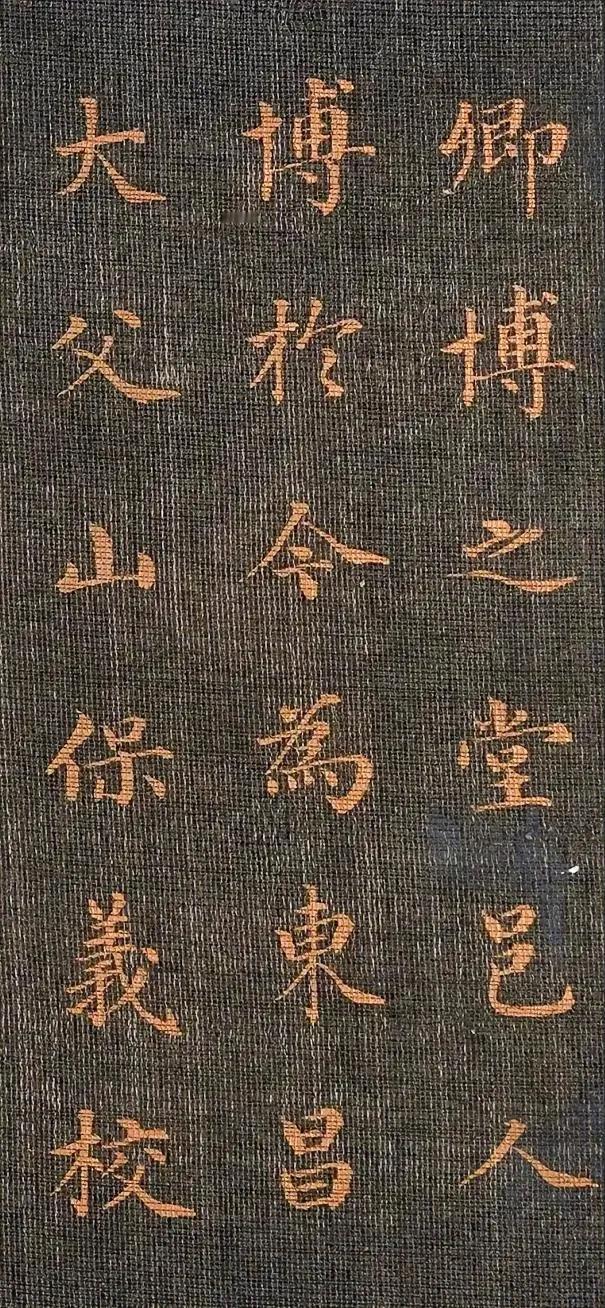 卿博之堂邑人
博於今為東昌
大父山保義校